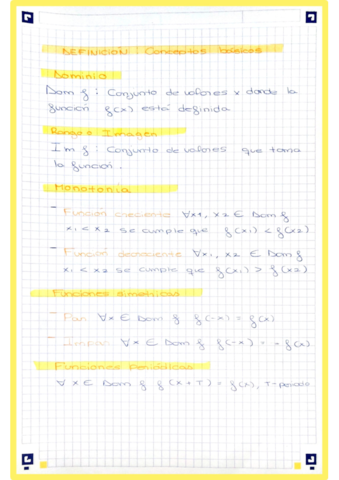 DEFINICIÓN: Conceptos básicos
Dominio
Dom f: Conjunto de valores x donde la
función f(x) está definida
Rango o Imagen
Im f: Conjunto de valores que toma
la función.
Monotonía
- Función creciente ∀x1, x2 ∈ Dom f
x1 < x2 se cumple que f(x1) < f(x2)
- Función decreciente ∀x1, x2 ∈ Dom f
x1 < x2 se cumple que f(x1) > f(x2)
Funciones simétricas
- Par ∀x ∈ Dom f f(-x) = f(x)
- Impar ∀x ∈ Dom f f(-x) = -f(x)
Funciones periódicas
∀x ∈ Dom f f(x+T) = f(x), T-periodo